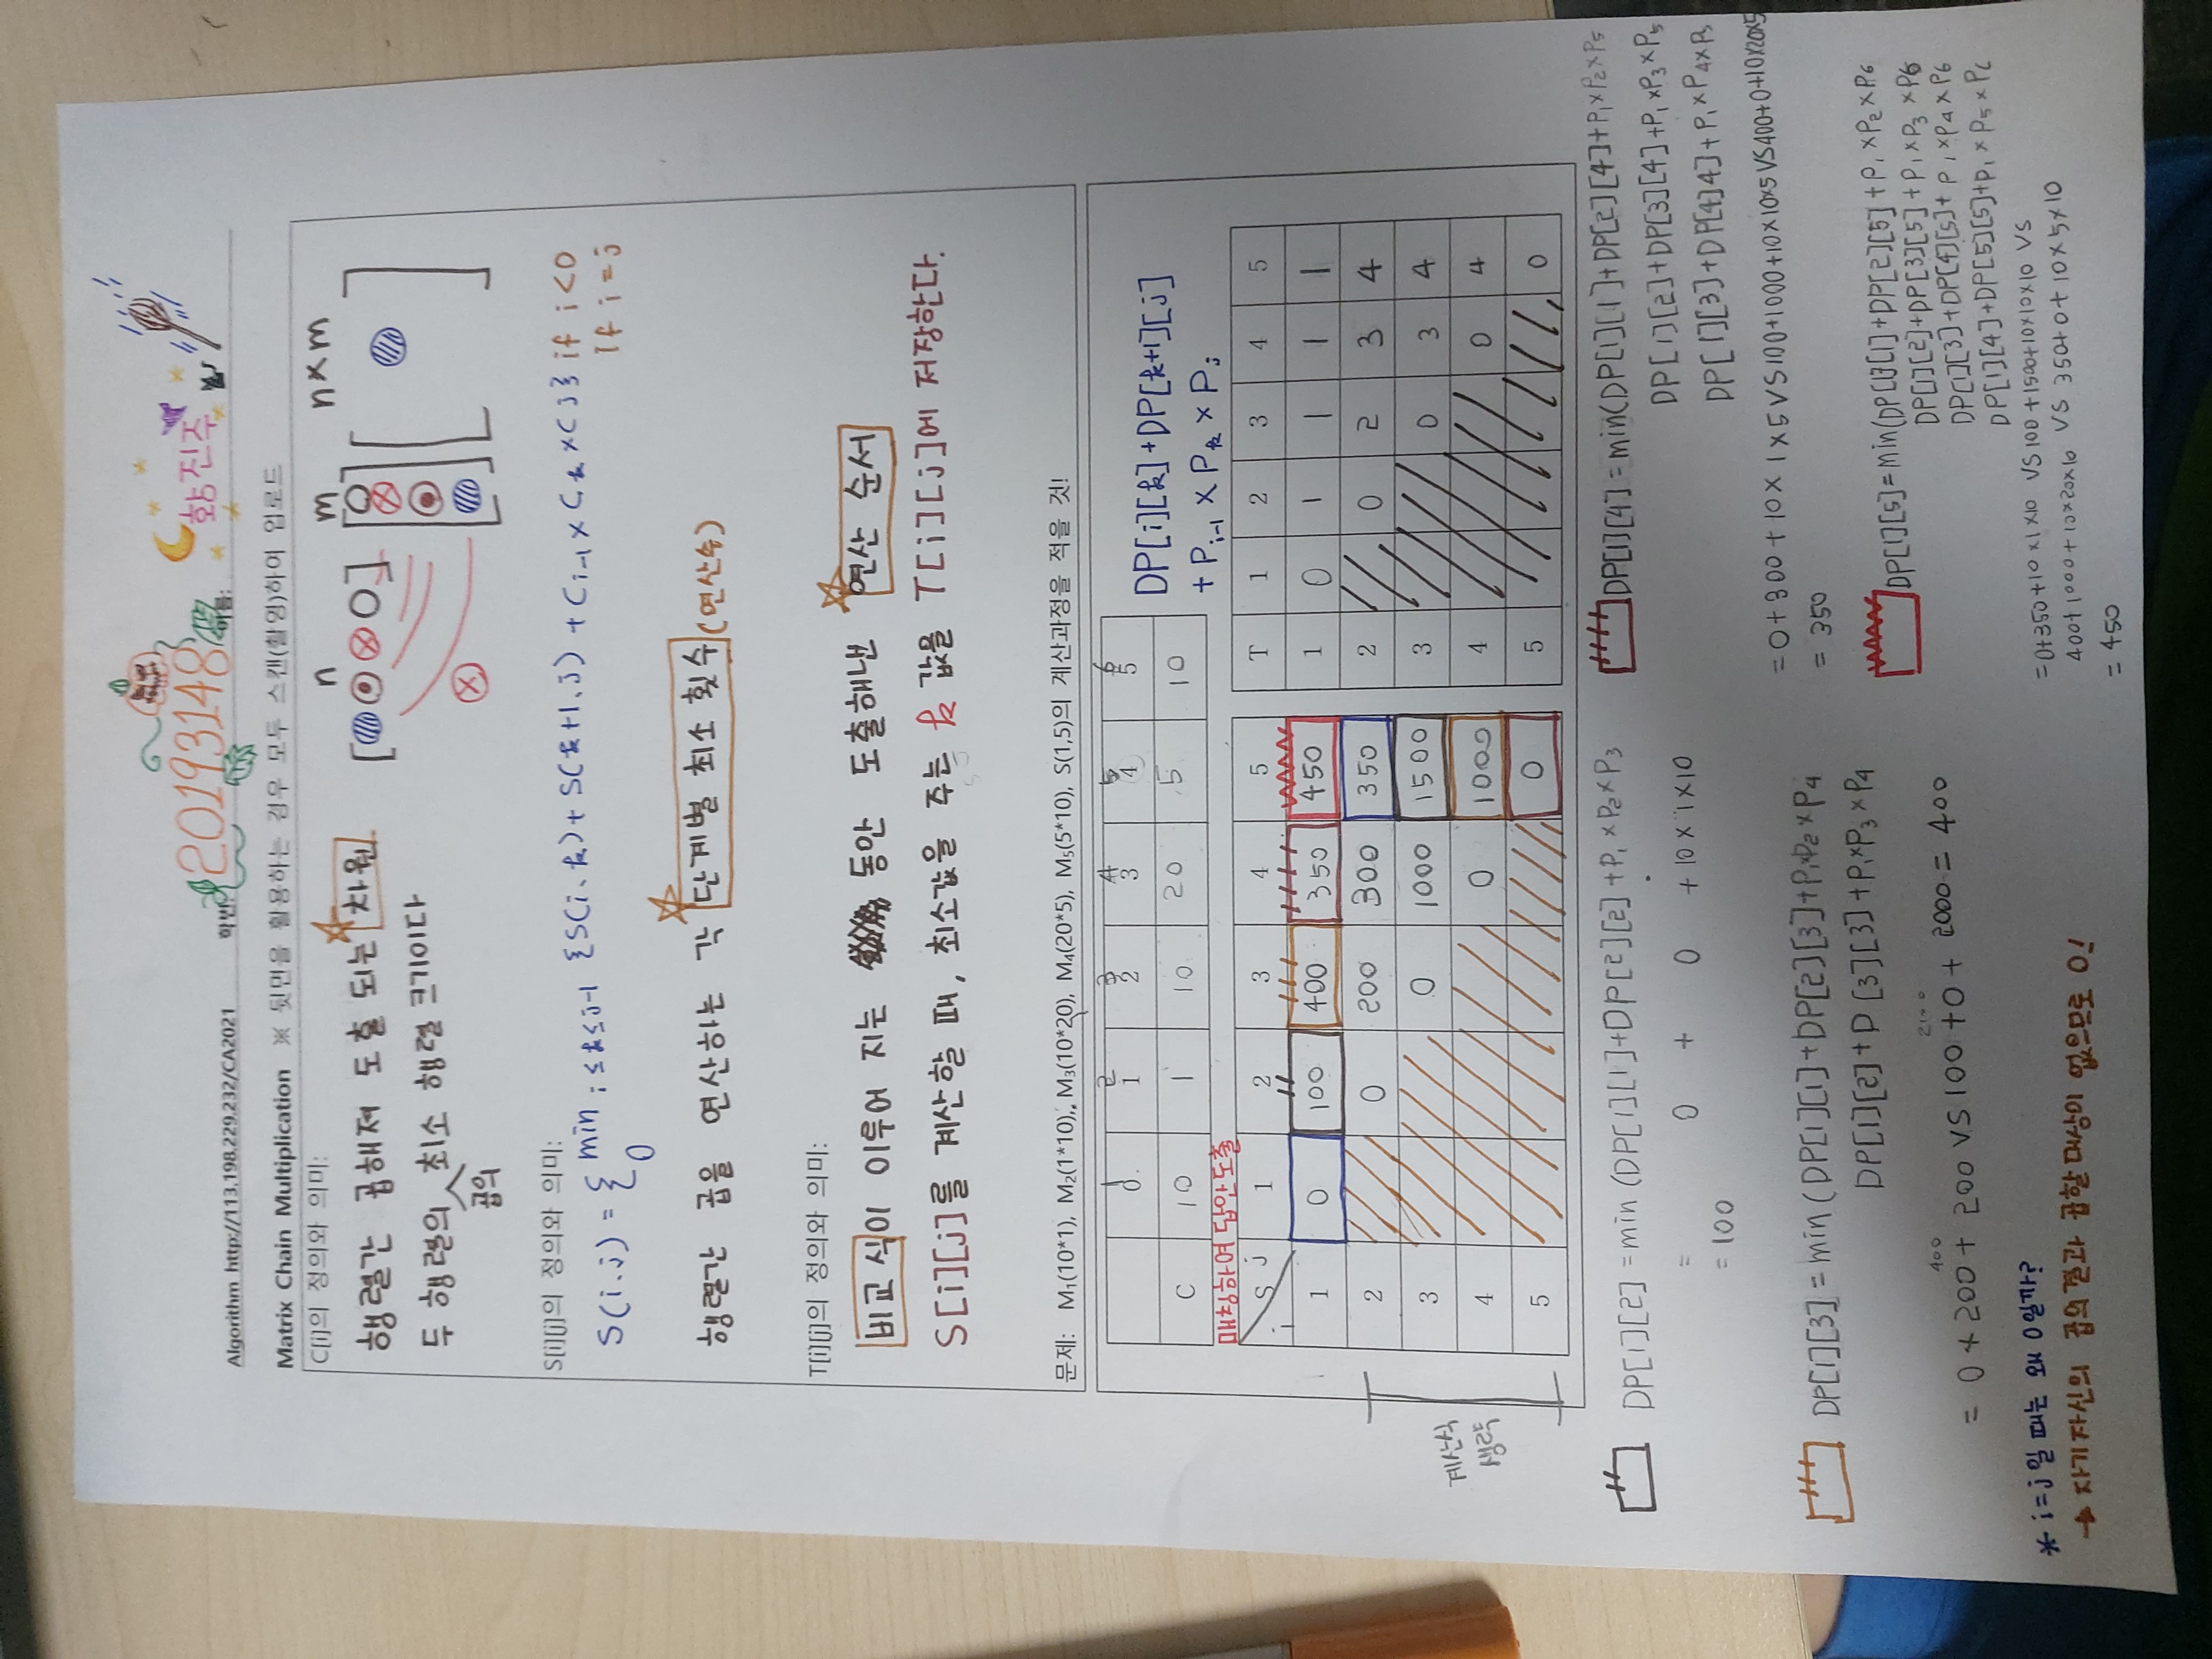 20193148
황진주
Algorithm http://113.198.229.232/CA2021 학번: 이름:
Matrix Chain Multiplication ※ 뒷면을 활용하는 경우 모두 스캔(촬영)하여 업로드
C[i]의 정의와 의미:
행렬간 곱해져 도출 되는 차원
두 행렬의 최소 행렬 크기이다
곱의
n m n×m
S[i][j]의 정의와 의미:
S(i.j) = { min i≤k≤j-1 {S(i.k)+S(k+1.j)+Ci-1×Ck×Cj} if i<0
0 If i=j
행렬간 곱을 연산하는 각 단계별 최소 횟수(연산수)
T[i][j]의 정의와 의미:
비교식이 이루어 지는 동안 도출해낸 연산 순서
S[i][j]를 계산할 때, 최소값을 주는 k 값을 T[i][j]에 저장한다.
문제: M₁(10*1), M₂(1*10),. M₃(10*20), M₄(20*5), M₅(5*10), S(1,5)의 계산과정을 적을 것!
1 2 3 4 5 6
0 1 2 3 4 5
C 10 1 10 20 5 10
DP[i][k]+DP[k+1][j]
+ Pi-1 × Pk × Pj
매칭하여 답안도출
i S j 1 2 3 4 5
1 0 100 400 350 450
2 0 200 300 350
3 0 1000 1500
4 0 1000
5 0
T 1 2 3 4 5
1 0 1 1 1 1
2 0 2 3 4
3 0 3 4
4 0 4
5 0
계산식
생략
DP[1][2] = min (DP[1][1]+DP[2][2]+P₁×P₂×P₃
= 0 + 0 + 10×1×10
= 100
DP[1][3] = min (DP[1][1]+DP[2][3]+P₁×P₂×P₄
DP[1][2]+D [3][3]+P₁×P₃×P₄
400
= 0+200+ 200 VS 100+0+ 2000 = 400
* i=j일 때는 왜 0일까?
→ 자기자신의 곱의 결과 곱할 대상이 없으므로 0!
DP[1][4] = min(DP[1][1]+DP[2][4]+P₁×P₂×P₅
DP[1][2]+DP[3][4]+P₁×P₃×P₅
DP[1][3]+DP[4]4]+P₁×P₄×P₅
=0+300+10×1×5 VS 100+1000+10×10×5 VS 400+0+10×20×5
= 350
DP[1][5]=min(DP[1][1]+DP[2][5]+P₁×P₂×P₆
DP[1][2]+DP[3][5]+P₁×P₃×P₆
DP[1][3]+DP[4][5]+P₁×P₄×P₆
DP[1][4]+DP[5][5]+P₁×P₅×P₆
=0+350+10×1×10 VS 100+1500+10×10×10 VS
400+1000+10×20×10 VS 350+0+10×5×10
= 450